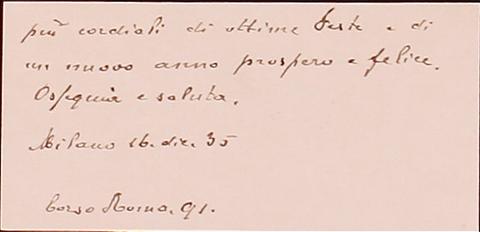 più cordiali di ottime Feste e di
un nuovo anno prospero e felice.
Ossequia e saluta.
Milano 16. dic. 35
Corso Roma. 91.